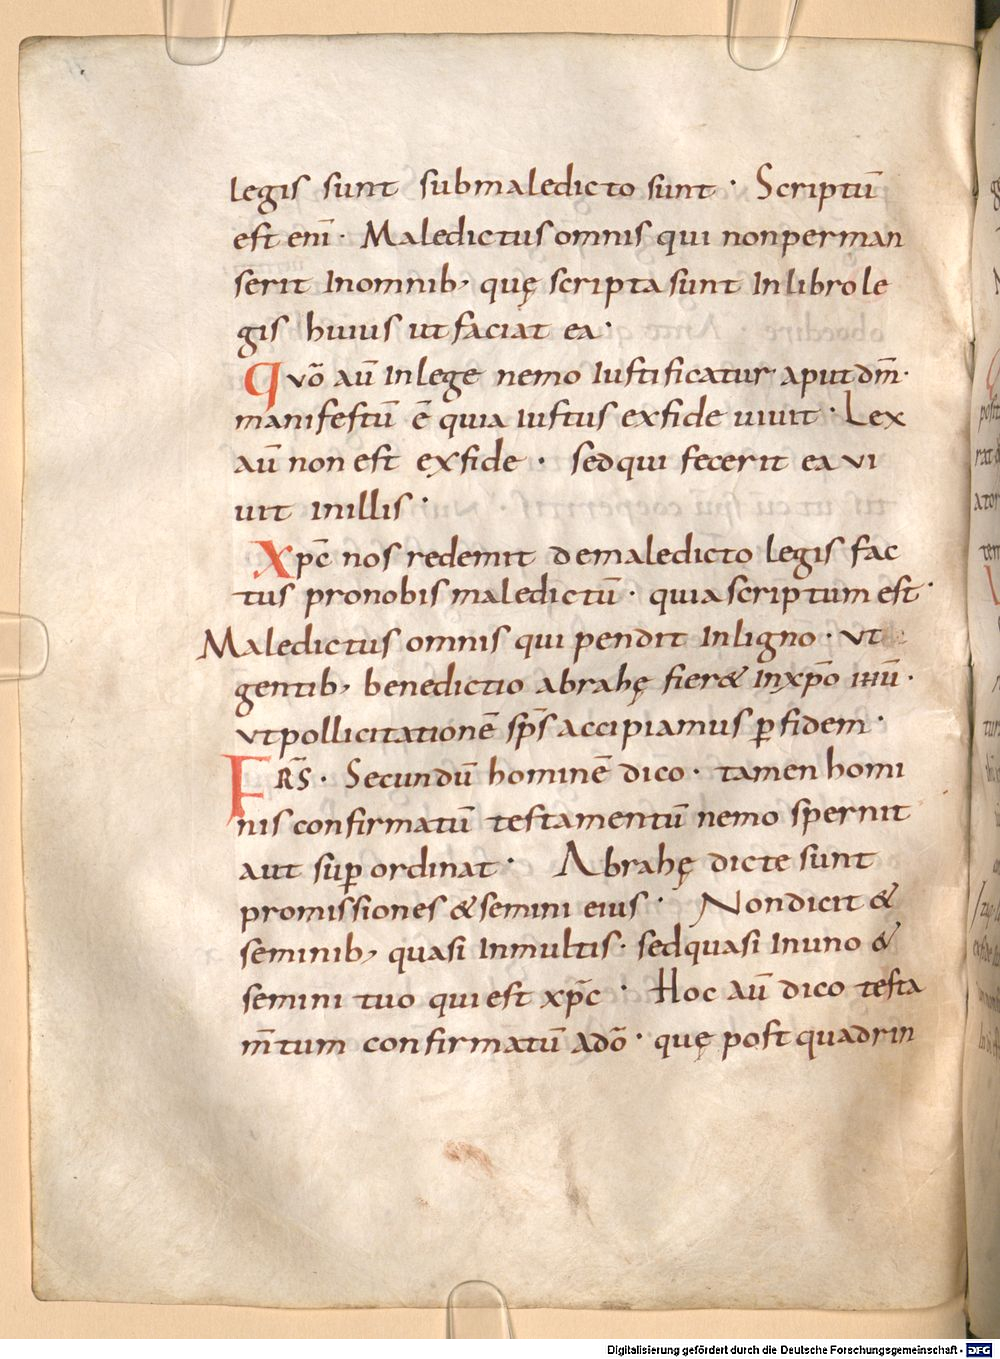 legis sunt submaledicto sunt · Scriptū
est eni̅ · Maledictus omnis qui nonperman
serit Inomnib, quę scripta sunt Inlibro le
gis huius ut faciat ea ·
Quō aū Inlege nemo Iustificatur aput dm̄ ·
manifestū ē quia iustus exfide uiuit · Lex
aū non est exfide · sed qui fecerit ea vi
uit inillis ·
Xp̄c nos redemit demaledicto legis fac
tus pronobis maledictū · quia scriptum est ·
Maledictus omnis qui pendit Inligno · vt
gentib, benedictio abrahę fier& Inxp̄o ihū ·
vt pollicitationē sp̄s accipiamus p̱ fidem ·
FRS̄ · Secundū hominē dico · tamen homi
nis confirmatū testamentū nemo spernit
aut sup̱ ordinat · Abrahę dicte sunt
promissiones & semini eius · Non dicit &
seminib, quasi Inmultis · sed quasi Inuno &
semini tuo qui est xp̄c · Hoc aū dico testa
m̄tum confirmatū ado̅ · quę post quadrin
Digitalisierung gefördert durch die Deutsche Forschungsgemeinschaft - DFG